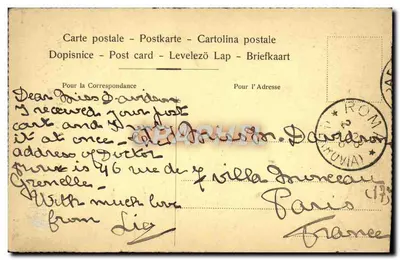 Carte postale - Postkarte - Cartolina postale
Dopisnice - Post card - Levelező Lap - Briefkaart
Pour la Correspondance
Pour l'Adresse
Dear Miss Davidson
I received your just
card and
it at once
address of Doctor
is 46 rue de
Grenelle.
With much love
from Lia
Davidson
7 villa Monceau
Paris
France
ROMA